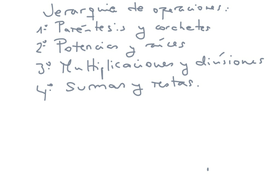 Jerarquia de operaciones:
1º Paréntesis y corchetes
2º Potencias y raíces
3º Multiplicaciones y divisiones
4º Sumas y restas.